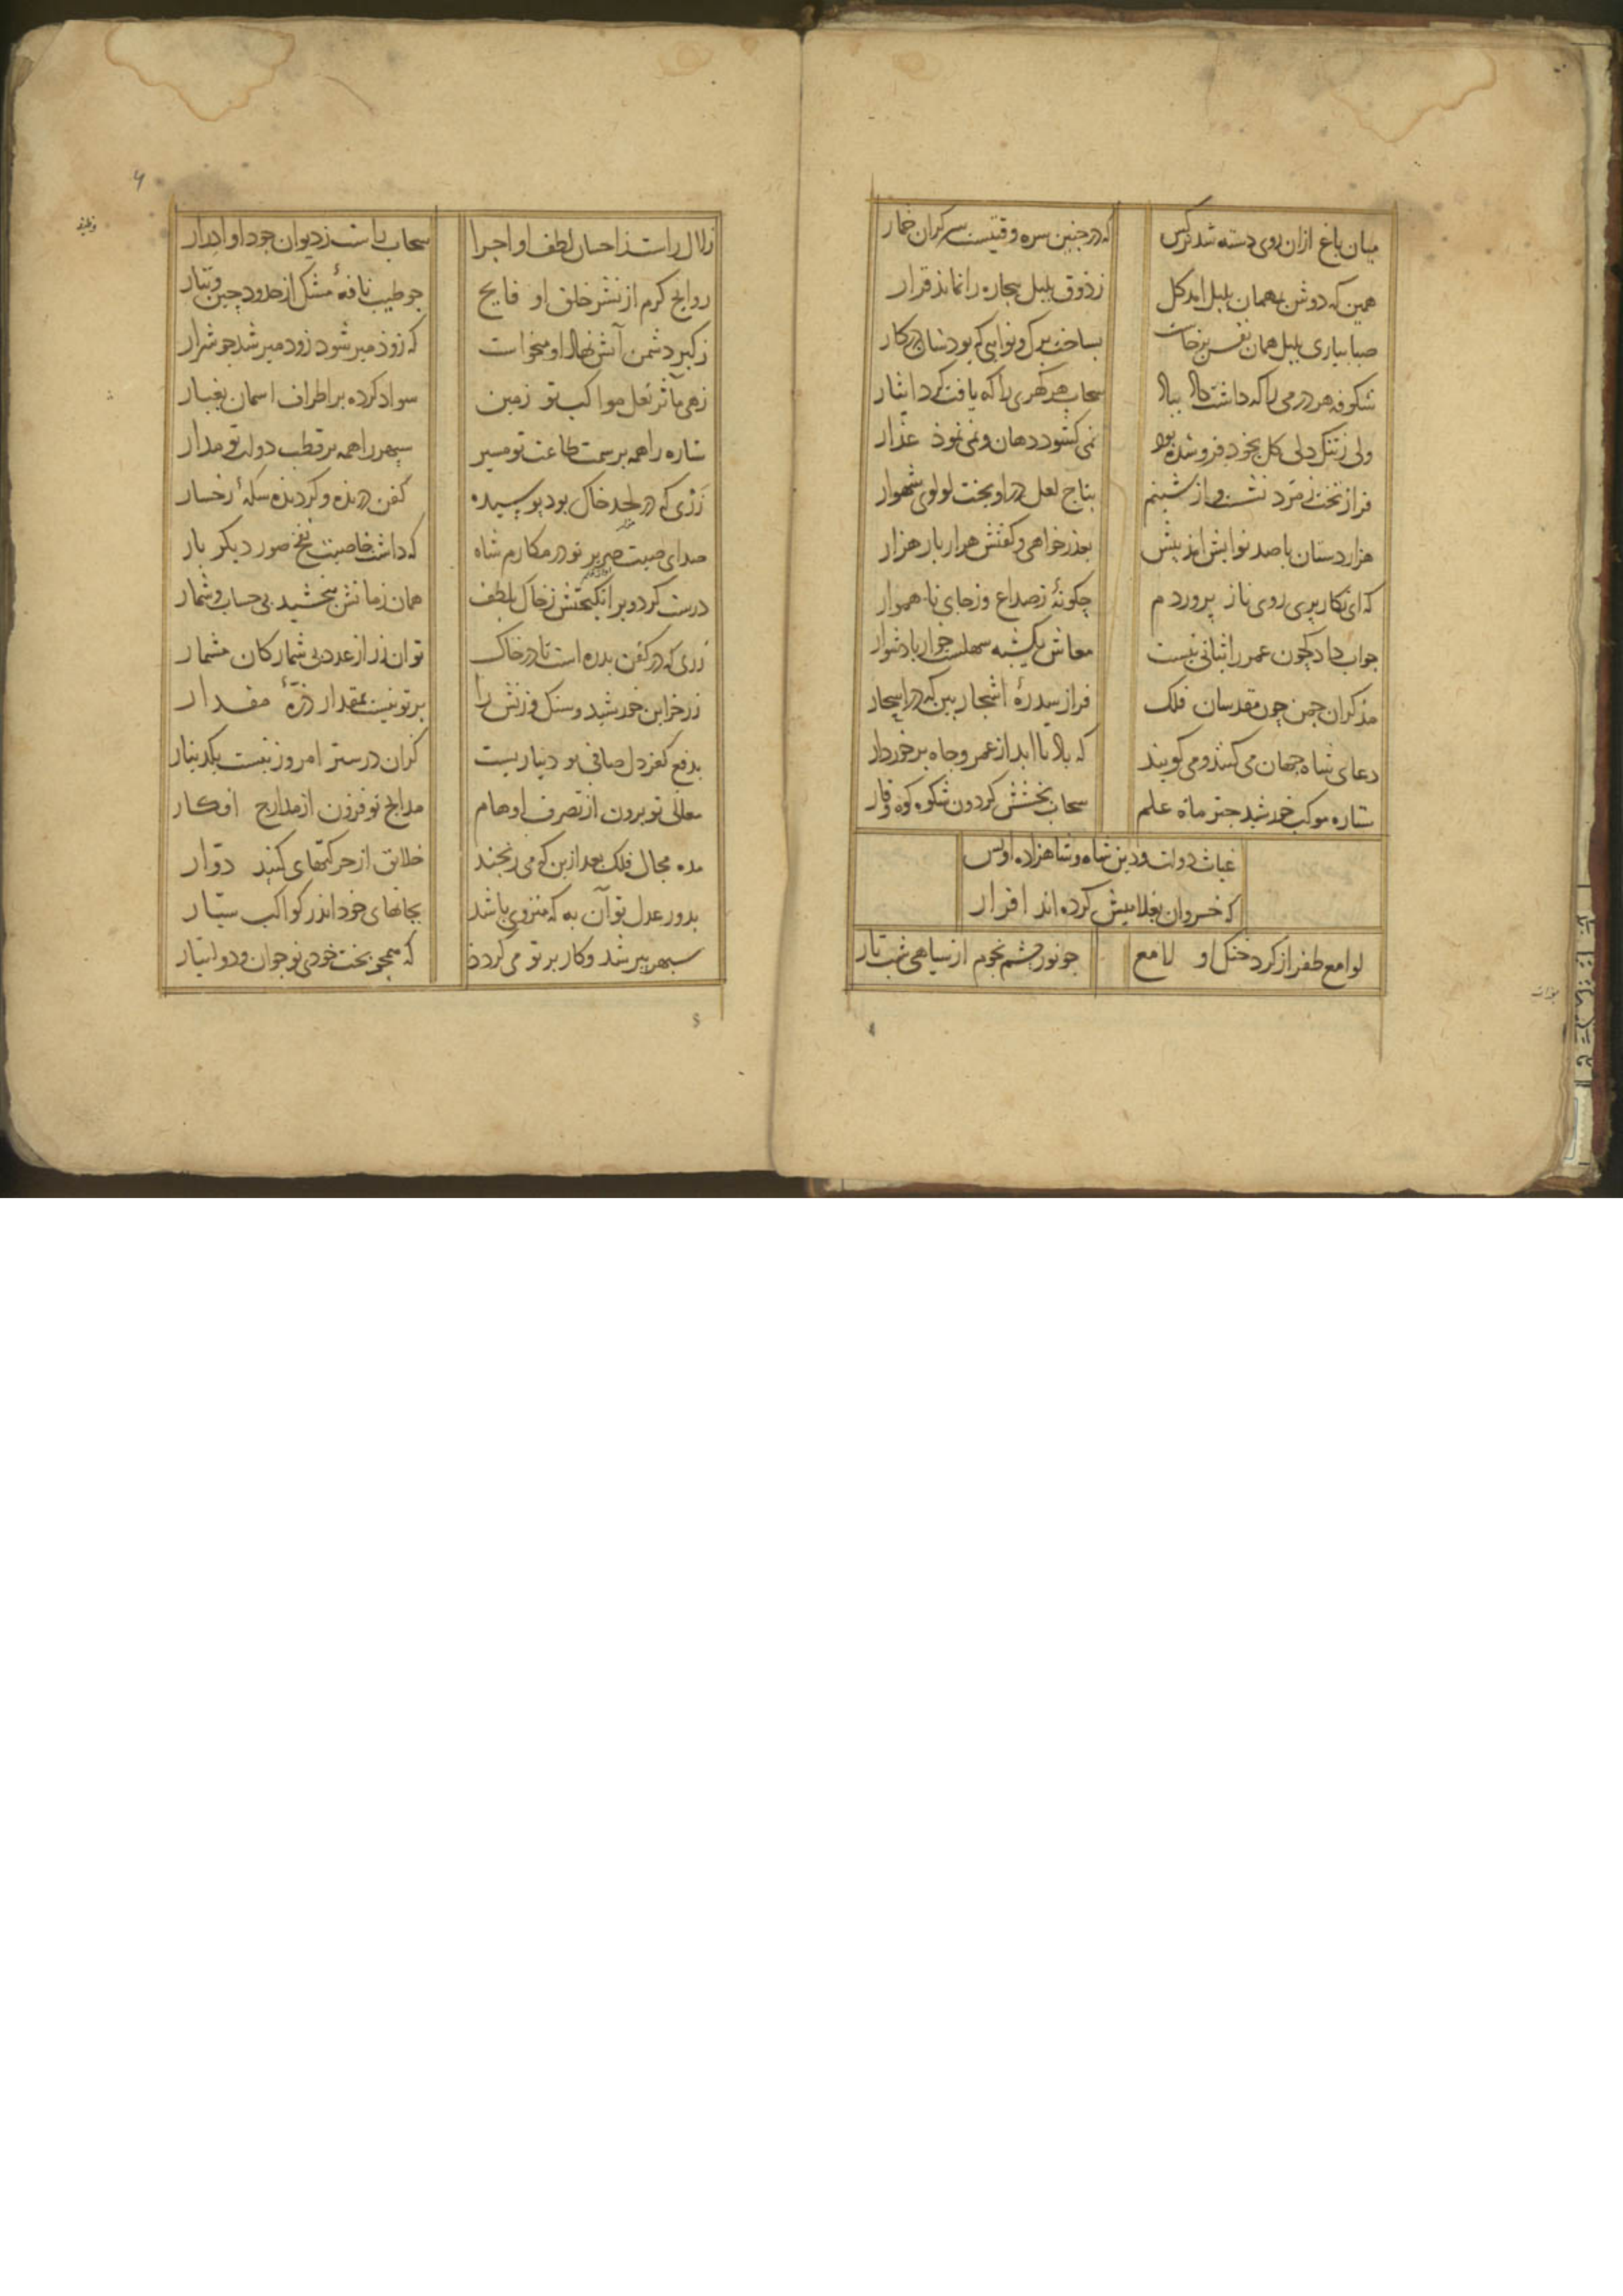 میان باغ ازان روی دسته شد نرکس که در جنین سره وقتیست سر کران خمار
همین که دوش بهمان بلبل امد کل ز ذوق بلبل بیجاره را نماند قرار
صبا بیاری بلبل همان نفس برخاست بساخت برک و نوایی که بودشان در کار
شکوفه هر درمی را که داشت سحاب هر کهری را که یافت کرد ایثار
ولی ز تنک دلی کل بخود فرو شده بود نمی کشود دهان و نمی نمود عذار
فراز تخت زمرد نشست و از شبنم بتاج لعل در اویخت لولوی شهوار
هزار دستان با صد نوایش امد بیش بعذر خواهی و کفتش هزار بار هزار
که ای نکار بری روی ناز پروردم چکونهٔ ز صداع و ز جای نا هموار
جواب داد که چون عمر را ثباتی نیست معاش یکشبه سهلست خوار یا دشوار
مذکران جمن چون مقدسان فلک فراز سدرهٔ اشجار بین که در اسحار
دعای شاه جهان می کنند و می کویند که بادتا ابد از عمر و جاه برخوردار
ستاره موکب خورشید جتر ماه علم سحاب بخشش کردون شکوه کوه وقار
غیاث دولت و دین شاه و شاهزاده اویس
که خسروان بغلامیش کرده اند اقرار
لوامع ظفر از کرد خنک او لامع جو نور جشم نجوم از سیاهی شب تار
زلال راست ز احسان لطف او اجرا سحاب راست ز دیوان جود او ادرار
وظیفه
روایح کرم از نشر خلق او فایح جو طیب نافهٔ مشک از حدود چین و تتار
ز کبر دشمن آتش نهاد او میخواست که زود میر شود زود میر شد جو شرار
زهی مآثر نعل مواکب تو زمین سواد کرده بر اطراف اسمان بغبار
ستاره را همه بر سمت طاعت تو مسیر سپهر را همه بر قطب دولت تو مدار
زری که در لحد خاک بود پوسیده کفن دریده و کردیده سکهٔ رخسار
صدای صیت صریر تو در مکارم شاه که داشت خاصیت نفخ صور دیکر بار
درست کرد و بر انکیختش ز خاک بلطف همان زمانش ببخشید بی حساب و شمار
زری که در کفن بدره است تا در خاک توان زر از عدد بی شمار کان مشمار
زر خزاین خورشید و سنک وزنش را بر تو نیست بمقدار ذرهٔ مقدار
بدفع کفر دل صافی تو دیناریست کزان درستر امروز نیست یکدینار
معالی تو برون از تصرف اوهام مدایح تو فزون از مدارج افکار
مده مجال فلک بعد ازین که می رنجند خلایق از حرکتهای کنبد دوّار
بدور عدل تو آن به که منزوی باشد بجانهای خود اندر کواکب سیّار
سبهر بیر شد و کار بر تو می کردد که همجو بخت خودی نوجوان و دولتیار